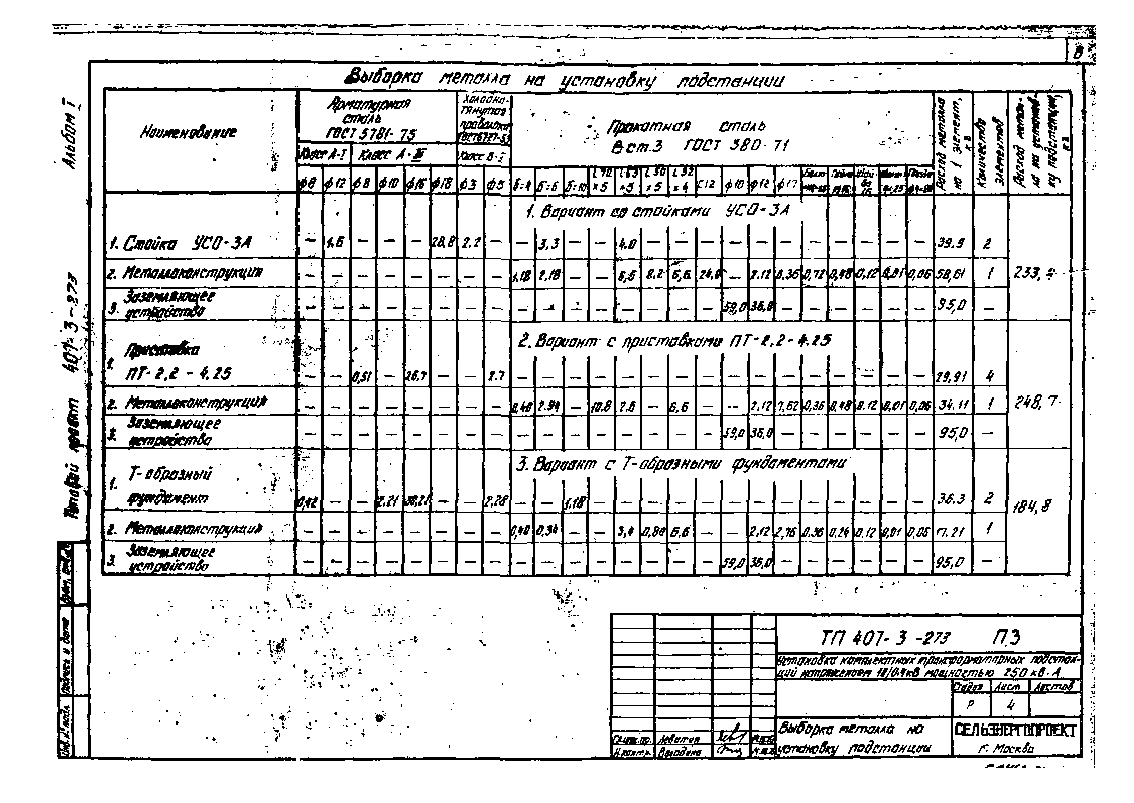 8
Альбом I
Типовой проект 407-3-273
Выборка металла на установку подстанции
Наименование
Арматурная сталь ГОСТ 5781-75
Холодно-тянутая проволока
Прокатная сталь
В ст.3 ГОСТ 380-71
Расход металла на 1 элемент, кг
Количество элементов
Расход металла на установку подстанции, кг
Класс А-I Класс А-III Класс В-I
ф8 ф12 ф8 ф10 ф16 ф18 ф3 ф5 δ=4 δ=6 δ=10 L90×5 L63×5 L50×5 L32×4 С12 ф10 ф12 ф17
1. Вариант со стойками УСО-3А
1. Стойка УСО-3А — 1,6 — — — 28,8 2,2 — — 3,3 — — 4,0 — — — — — — — — — — — 39,9 2
2. Металлоконструкция — — — — — — — — 1,18 2,18 — — 6,6 8,2 6,6 24,0 — 2,12 0,36 0,72 0,48 0,12 0,01 0,06 58,61 1 233,4
3. Заземляющее устройство — — — — — — — — — — — — — — — — 59,0 36,0 — — — — — — 95,0 —
2. Вариант с приставками ПТ-2,2-4,25
1. Приставка
ПТ-2,2-4,25 — — 0,51 — 26,7 — — 2,7 — — — — — — — — — — — — — — — — 29,91 4
2. Металлоконструкция — — — — — — — — 0,40 2,94 — 10,8 2,6 — 6,6 — — 2,12 7,62 0,36 0,48 0,12 0,01 0,06 34,11 1 248,7
3. Заземляющее устройство — — — — — — — — — — — — — — — — 59,0 36,0 — — — — — — 95,0 —
3. Вариант с Т-образными фундаментами
1. Т-образный
фундамент 0,42 — — 2,21 30,21 — — 2,28 — — 1,18 — — — — — — — — — — — — — 36,3 2 184,8
2. Металлоконструкция — — — — — — — — 0,40 0,34 — — 3,4 0,80 6,6 — — 2,12 2,76 0,36 0,24 0,12 0,01 0,06 17,21 1
3. Заземляющее устройство — — — — — — — — — — — — — — — — 59,0 36,0 — — — — — — 95,0 —
ТП 407-3-273 ПЗ
Установка комплектных трансформаторных подстан-
ций напряжением 10/0,4 кВ мощностью 250 кВ·А
Стадия Лист Листов
Р 4
Выборка металла на
установку подстанции
СЕЛЬЭНЕРГОПРОЕКТ
г. Москва
Н.контр.
Подпись и дата
Инв. № подл.